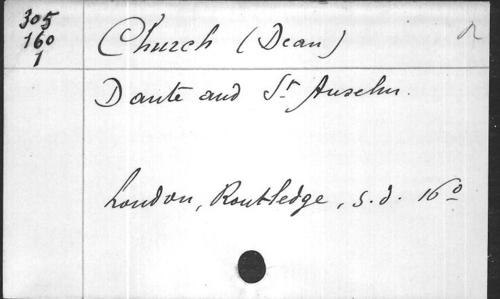 305
160
1
Church (Dean)
Dante and St Anselm.
London, Routledge, s.d. 16º